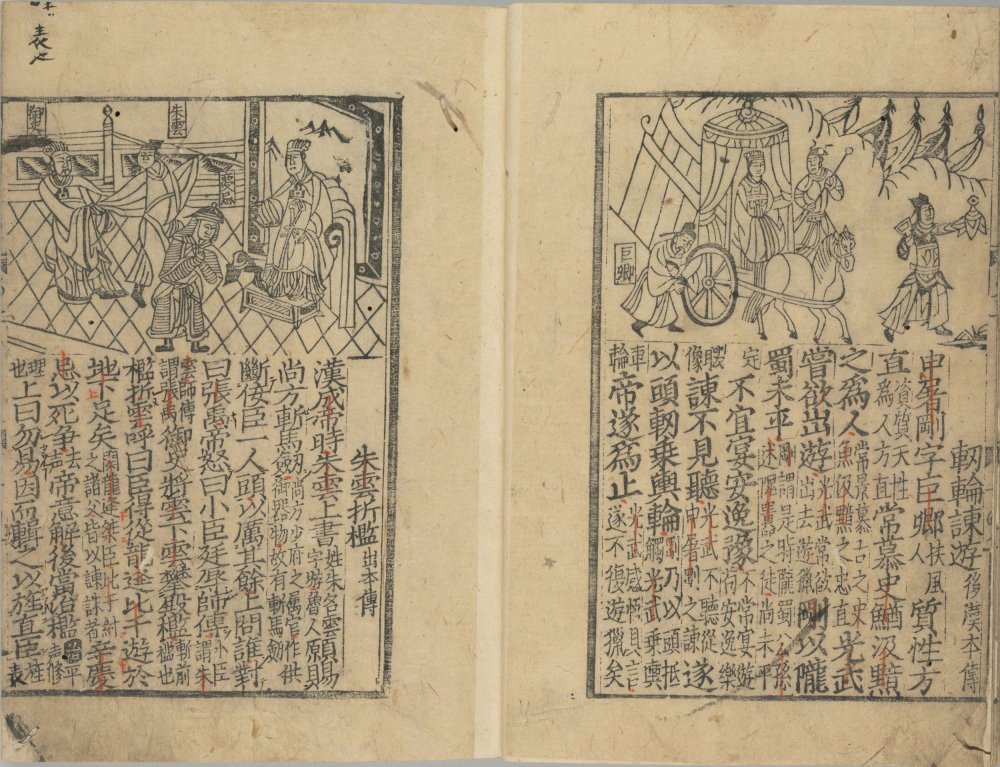 巨卿
軔輪諫遊 後漢本傳
申屠剛字巨卿扶風人質性方
直資質天性為人方直常慕史鰌汲黯
之為人常景慕古之史魚汲黯之忠直光武
嘗欲出遊光武常欲出去遊獵剛以隴
蜀未平剛謂是時隴蜀公孫述隗囂之徒尚未平
定不宜宴安逸豫不常宴遊苟安逸樂
諫不見聽光武不聽從申屠剛之諫遂
以頭軔乘輿輪剛乃以頭抵觸光武乘輿
車輪帝遂為止光武感悟其言遂不復遊獵矣
朱雲
張禹
御史
朱雲折檻 出本傳
漢成帝時朱雲上書姓朱名雲字游魯人願賜
尚方斬馬劔尚方少府之屬官作供御器物故有斬馬劔
斷佞臣一人頭以厲其餘上問誰對
曰張禹帝怒曰小臣廷辱師傅小臣謂朱
雲師傅謂張禹御史將雲下雲攀殿檻殿前檻也
檻折雲呼曰臣得從龍逄比干遊於
地下足矣關龍逄桀臣比干紂之諸父皆以諫誅者辛慶
忌以死争去声帝意解後當治檻治平声修
理也上曰勿易因而輯之以旌直臣旌
表
表也